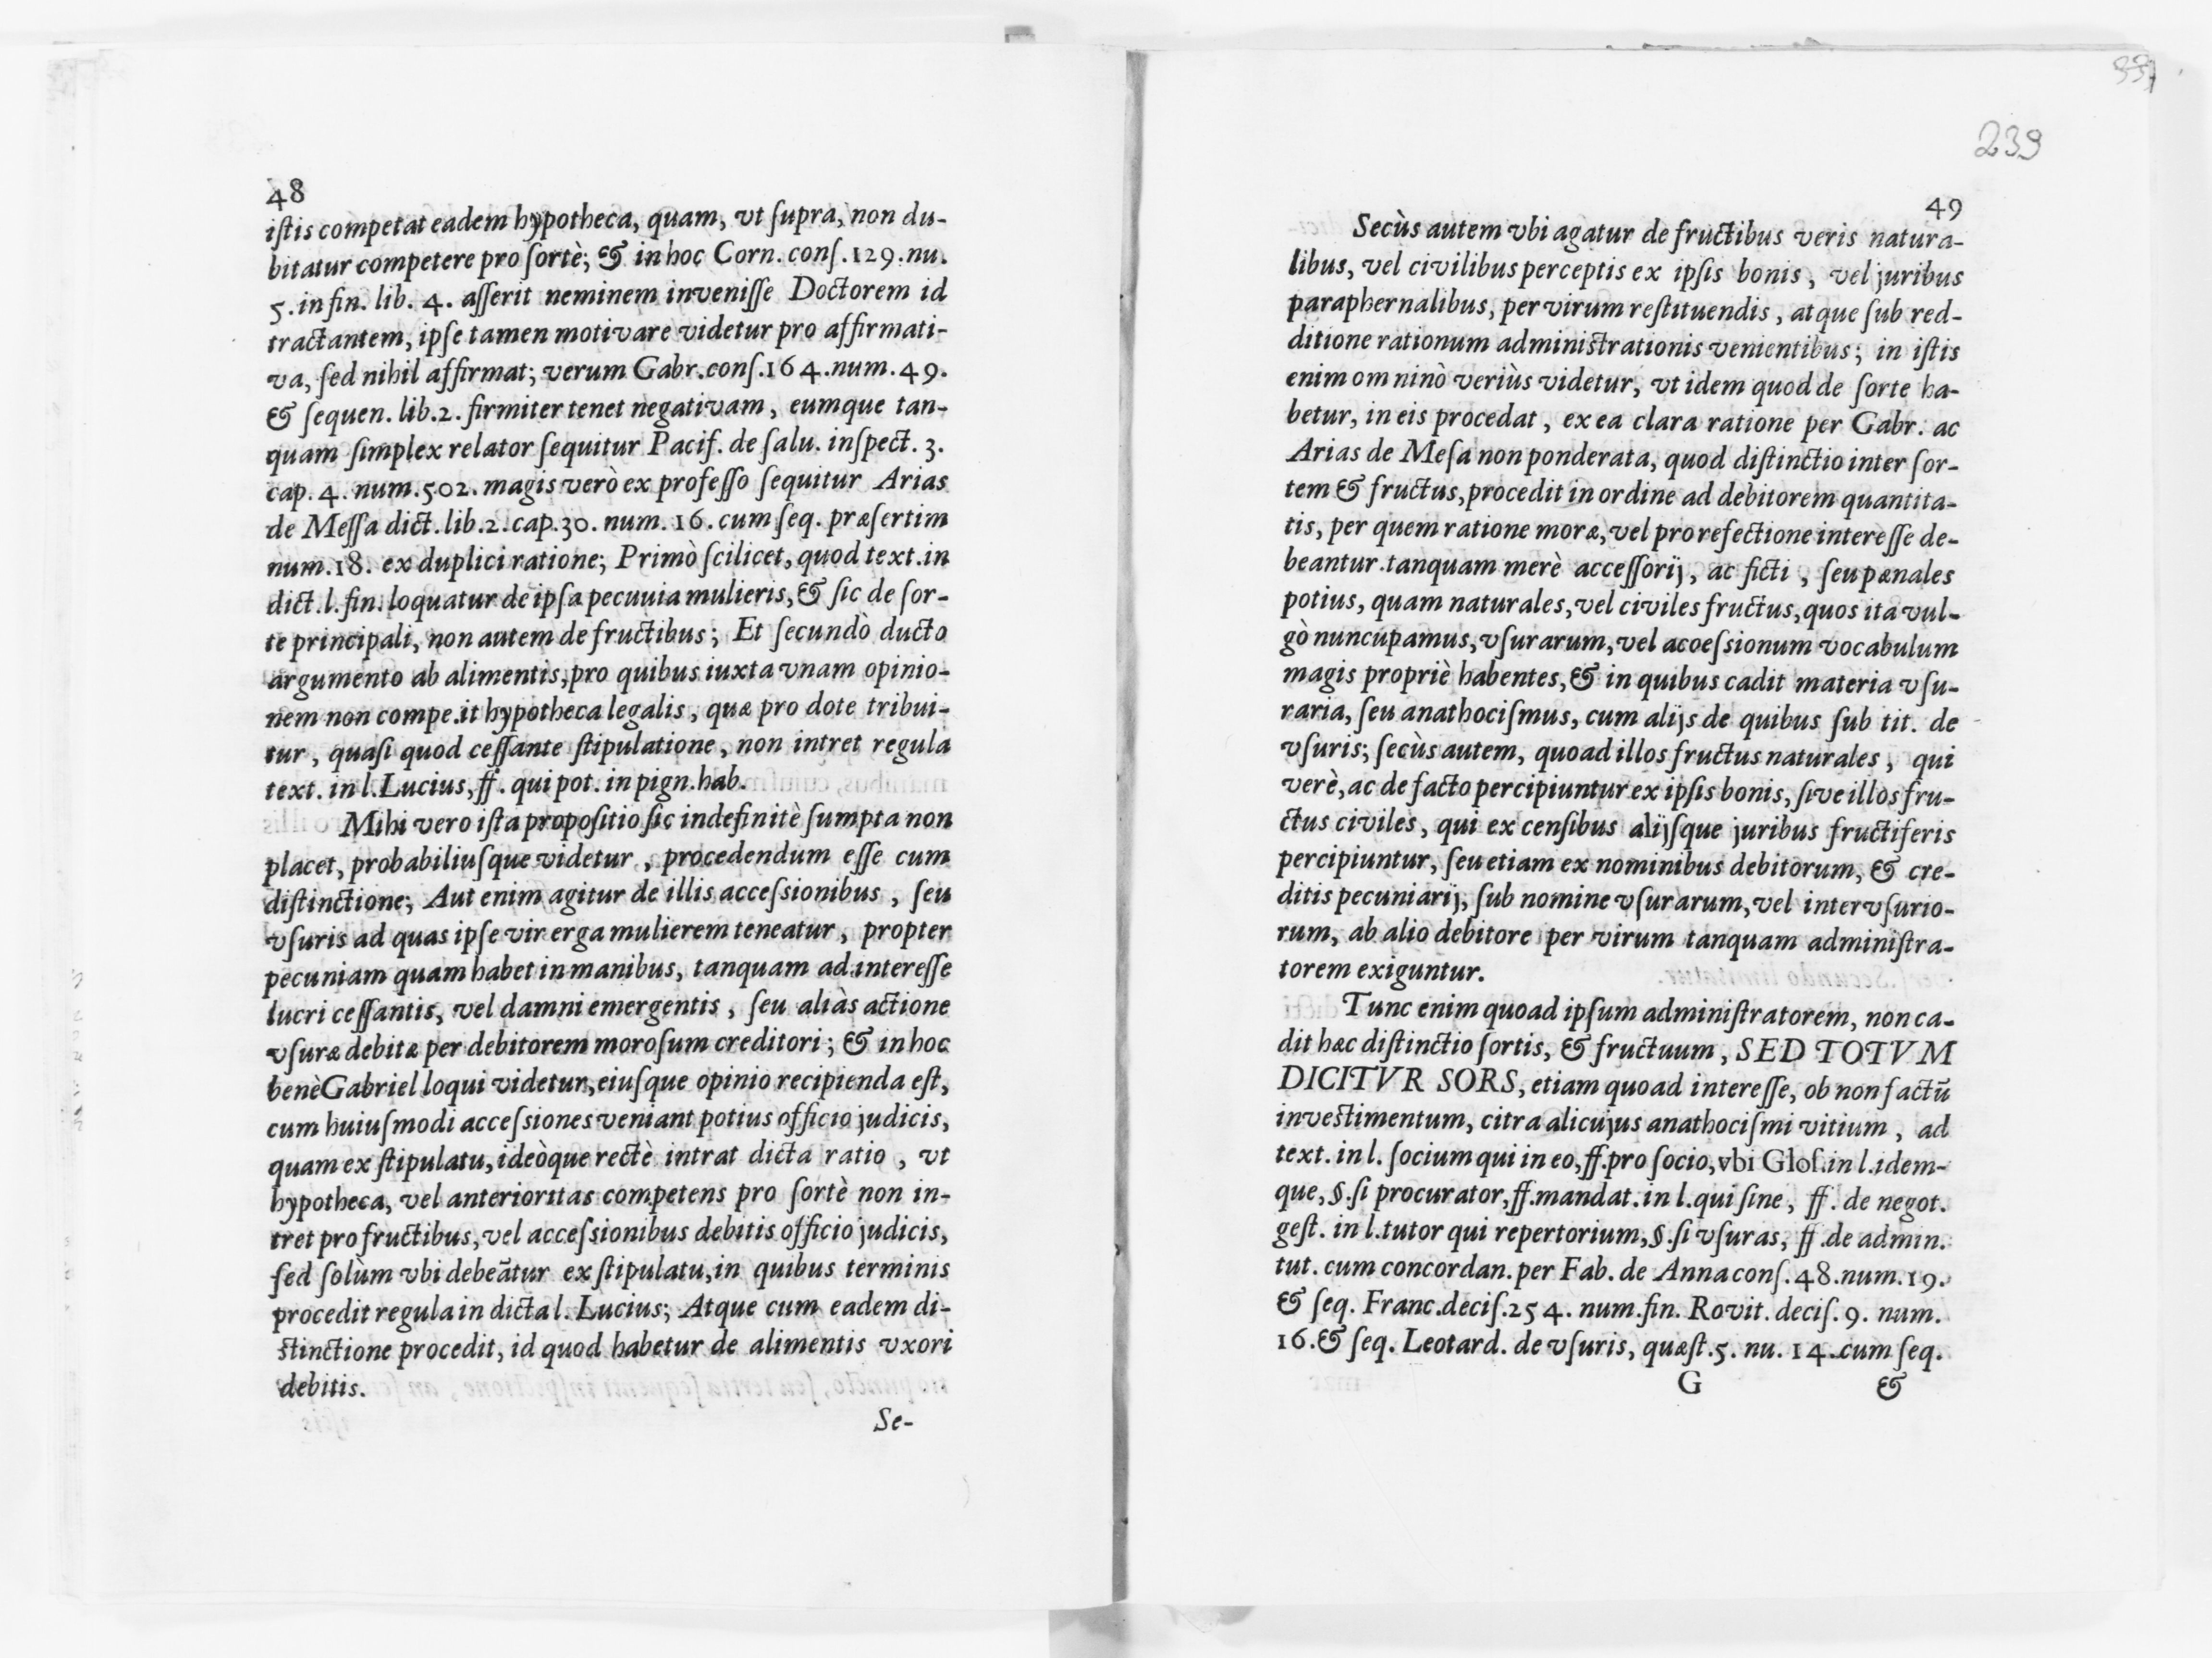 48
iſtis competat eadem hypotheca, quam, vt ſupra, non du-
bitatur competere pro ſortè; & in hoc Corn. conſ. 129. nu.
5. in fin. lib. 4. aſſerit neminem inveniſſe Doctorem id
tractantem, ipſe tamen motivare videtur pro affirmati-
va, ſed nihil affirmat; verum Gabr. conſ. 164. num. 49.
& ſequen. lib. 2. firmiter tenet negativam, eumque tan-
quam ſimplex relator ſequitur Pacif. de ſalu. inſpect. 3.
cap. 4. num. 502. magis verò ex profeſſo ſequitur Arias
de Meſſa dict. lib. 2. cap. 30. num. 16. cum ſeq. præſertim
num. 18. ex duplici ratione; Primò ſcilicet, quod text. in
dict. l. fin. loquatur de ipſa pecuuia mulieris, & ſic de ſor-
te principali, non autem de fructibus; Et ſecundò ducto
argumento ab alimentis, pro quibus iuxta vnam opinio-
nem non compe.it hypotheca legalis, quæ pro dote tribui-
tur, quaſi quod ceſſante ſtipulatione, non intret regula
text. in l. Lucius, ff. qui pot. in pign. hab.
Mihi vero iſta propoſitio ſic indefinitè ſumpta non
placet, probabiliuſque videtur, procedendum eſſe cum
diſtinctione; Aut enim agitur de illis acceſsionibus, ſeu
vſuris ad quas ipſe vir erga mulierem teneatur, propter
pecuniam quam habet in manibus, tanquam ad intereſſe
lucri ceſſantis, vel damni emergentis, ſeu aliàs actione
vſuræ debitæ per debitorem moroſum creditori; & in hoc
benè Gabriel loqui videtur, eiuſque opinio recipienda eſt,
cum huiuſmodi acceſsiones veniant potius officio judicis,
quam ex ſtipulatu, ideòque rectè intrat dicta ratio, vt
hypotheca, vel anterioritas competens pro ſortè non in-
tret pro fructibus, vel acceſsionibus debitis officio judicis,
ſed ſolùm vbi debeãtur ex ſtipulatu, in quibus terminis
procedit regula in dicta l. Lucius; Atque cum eadem di-
ſtinctione procedit, id quod habetur de alimentis vxori
debitis.
Se-
239
49
Secùs autem vbi agatur de fructibus veris natura-
libus, vel civilibus perceptis ex ipſis bonis, vel juribus
paraphernalibus, per virum reſtituendis, atque ſub red-
ditione rationum adminiſtrationis venientibus; in iſtis
enim omninò veriùs videtur, vt idem quod de ſorte ha-
betur, in eis procedat, ex ea clara ratione per Gabr. ac
Arias de Meſa non ponderata, quod diſtinctio inter ſor-
tem & fructus, procedit in ordine ad debitorem quantita-
tis, per quem ratione moræ, vel pro refectione intereſſe de-
beantur tanquam merè acceſſorij, ac ficti, ſeu pænales
potius, quam naturales, vel civiles fructus, quos ita vul-
gò nuncupamus, vſurarum, vel acoeſsionum vocabulum
magis propriè habentes, & in quibus cadit materia vſu-
raria, ſeu anathociſmus, cum alijs de quibus ſub tit. de
vſuris; ſecùs autem, quoad illos fructus naturales, qui
verè, ac de facto percipiuntur ex ipſis bonis, ſive illos fru-
ctus civiles, qui ex cenſibus alijſque juribus fructiferis
percipiuntur, ſeu etiam ex nominibus debitorum, & cre-
ditis pecuniarij, ſub nomine vſurarum, vel intervſurio-
rum, ab alio debitore per virum tanquam adminiſtra-
torem exiguntur.
Tunc enim quoad ipſum adminiſtratorem, non ca-
dit hæc diſtinctio ſortis, & fructuum, SED TOTVM
DICITVR SORS, etiam quoad intereſſe, ob non factũ
inveſtimentum, citra alicujus anathociſmi vitium, ad
text. in l. ſocium qui in eo, ff. pro ſocio, vbi Gloſ. in l. idem-
que, §. ſi procurator, ff. mandat. in l. qui ſine, ff. de negot.
geſt. in l. tutor qui repertorium, §. ſi vſuras, ff. de admin.
tut. cum concordan. per Fab. de Anna conſ. 48. num. 19.
& ſeq. Franc. deciſ. 254. num. fin. Rovit. deciſ. 9. num.
16. & ſeq. Leotard. de vſuris, quæſt. 5. nu. 14. cum ſeq.
G &